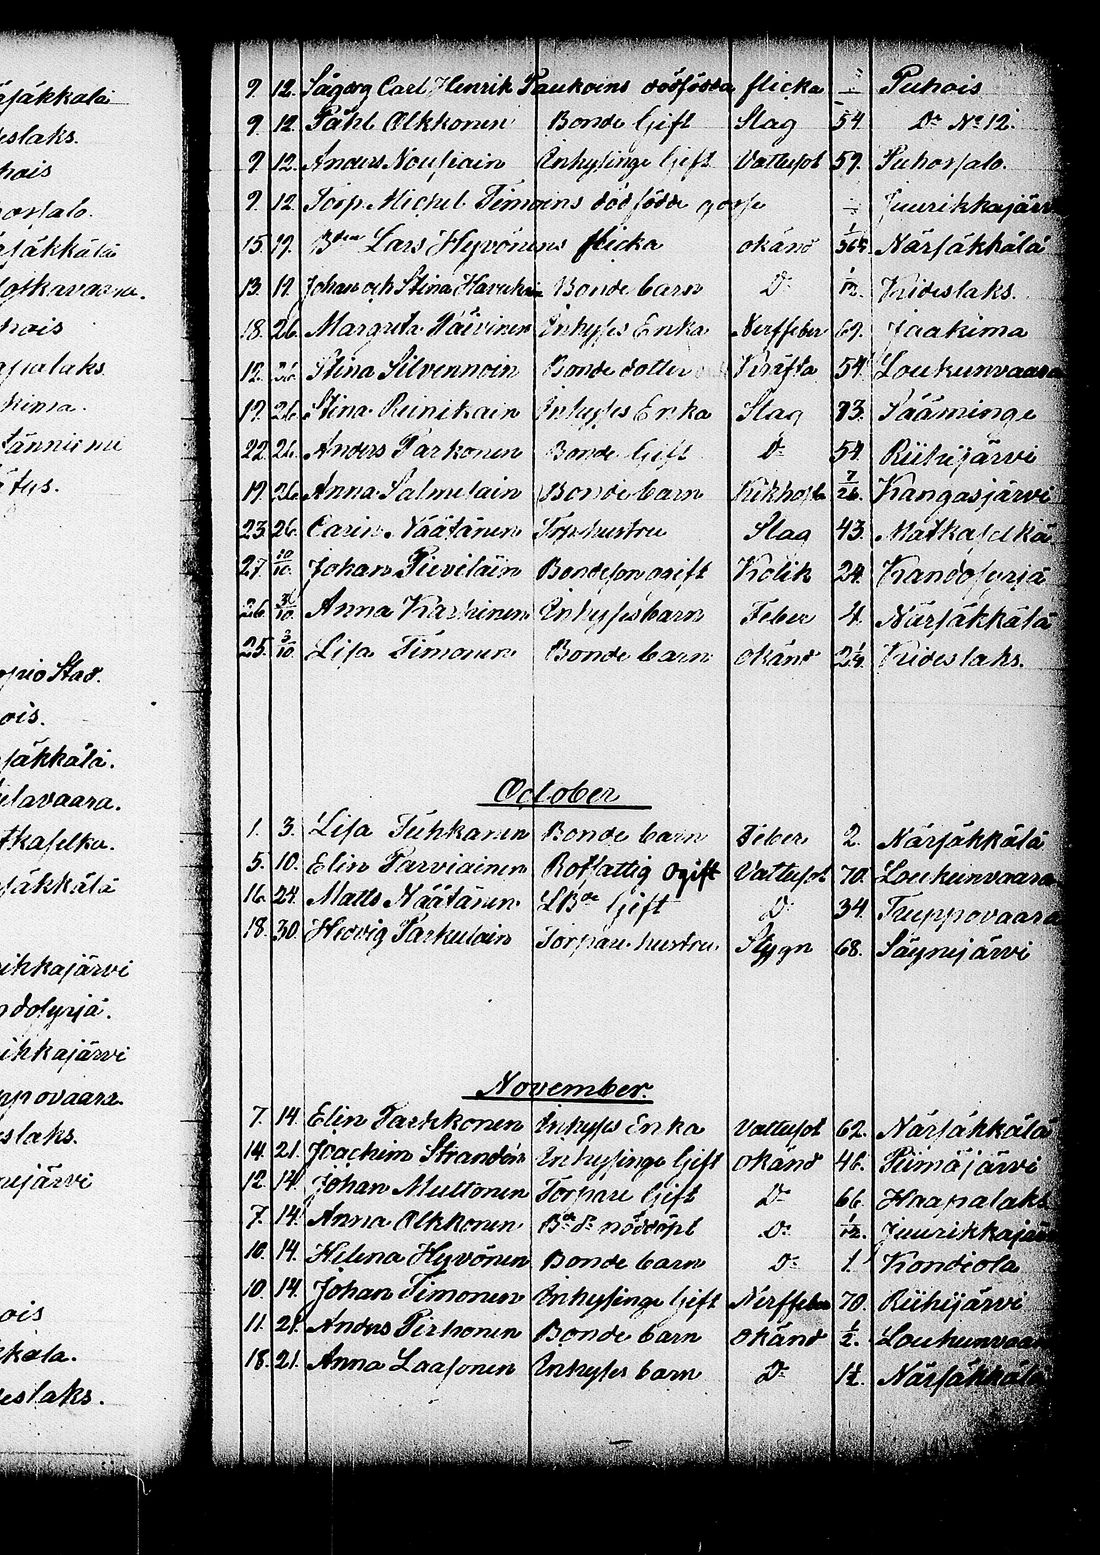 äkkälä
eslaks.
hois
orsalo.
äkkälä
otkavaara.
hois
palaks
kima.
änniemi
ätys.
opio Stad.
ois.
äkkälä.
elavaara.
kaselka.
äkkälä
rikkajärvi
dosyrjä.
ikkajärvi
ppovaara
slaks.
nejärvi
ois
kkala.
eslaks.
9. 12. Sågarg Carl Henrik Paukoins dödfödda flicka Puhois
9. 12. Påhl Olkkonen Bonde Gift Slag 54. Do No 12.
9. 12. Anders Nousiain Inhysinge Gift Vattusot 59. Puhorsalo.
9. 12. Torp. Michel Timoins dödfödde gosse Juurikkajärv
15. 19. Bden Lars Hyvönens flicka okänd 1/365 Närsäkkälä
13. 19. Johan och Stina Bonde barn Do 1/12. Kideslaks.
18. 26. Margreta Päivinen Inhyses Enka Nerffeber 69. Jaakima
12. 26. Stina Silvennoin Bonde dotter Kräfta 54. Loukunvaara
19. 26. Stina Reinikain Inhyses Enka Slag 83. Sääminge
22. 26. Anders Parkonen Bonde Gift Do 54. Riihijärvi
19. 26. Anna Salmelain Bonde barn Kikhosta 7/26. Kangasjärvi
23. 26. Carin Väätänen Torp. hustru Slag 43. Matkaselkä
27. 10/10. Johan Pieviläin Bondeson ogift Kolik 24. Kandosyrjä
26. /10. Anna Karhinen Inhyses barn Feber 4. Närsäkkälä
25. 3/10. Lisa Timonen Bonde barn okänd 2 1/4. Kideslaks.
October
1. 3. Lisa Tuhkanen Bonde barn Feber 2. Närsäkkälä
5. 10. Elin Parviainen Rotfattig Ogift Vattusot 70. Loukunvaara
16. 24. Matts Näätänen LBde Gift Do 34. Truppovaara
18. 30. Hedvig Parkulain Torpare hustru Stygn 68. Säynejärvi
November.
7. 14. Elin Parkkonen Inhyses Enka Vattusot 62. Närsäkkälä
14. 21. Joachim Strandén Inhysinge Gift okänd 46. Piimäjärvi
12. 14. Johan Muttonen Torpare Gift Do 66. Haapalaks
7. 14. Anna Olkkonen Bde dr nöddöpt Do 1/12. Juurikkajär
10. 14. Helena Hyvönen Bonde barn Do 1. Kondiola
10. 14. Johan Timonen Inhysinge Gift Nerffeber 70. Riihijärvi
11. 21. Anders Pirhonen Bonde barn okänd 1/2. Loukunvaar
18. 21. Anna Laasonen Inhyses barn Do 1 1/2. Närsäkkälä